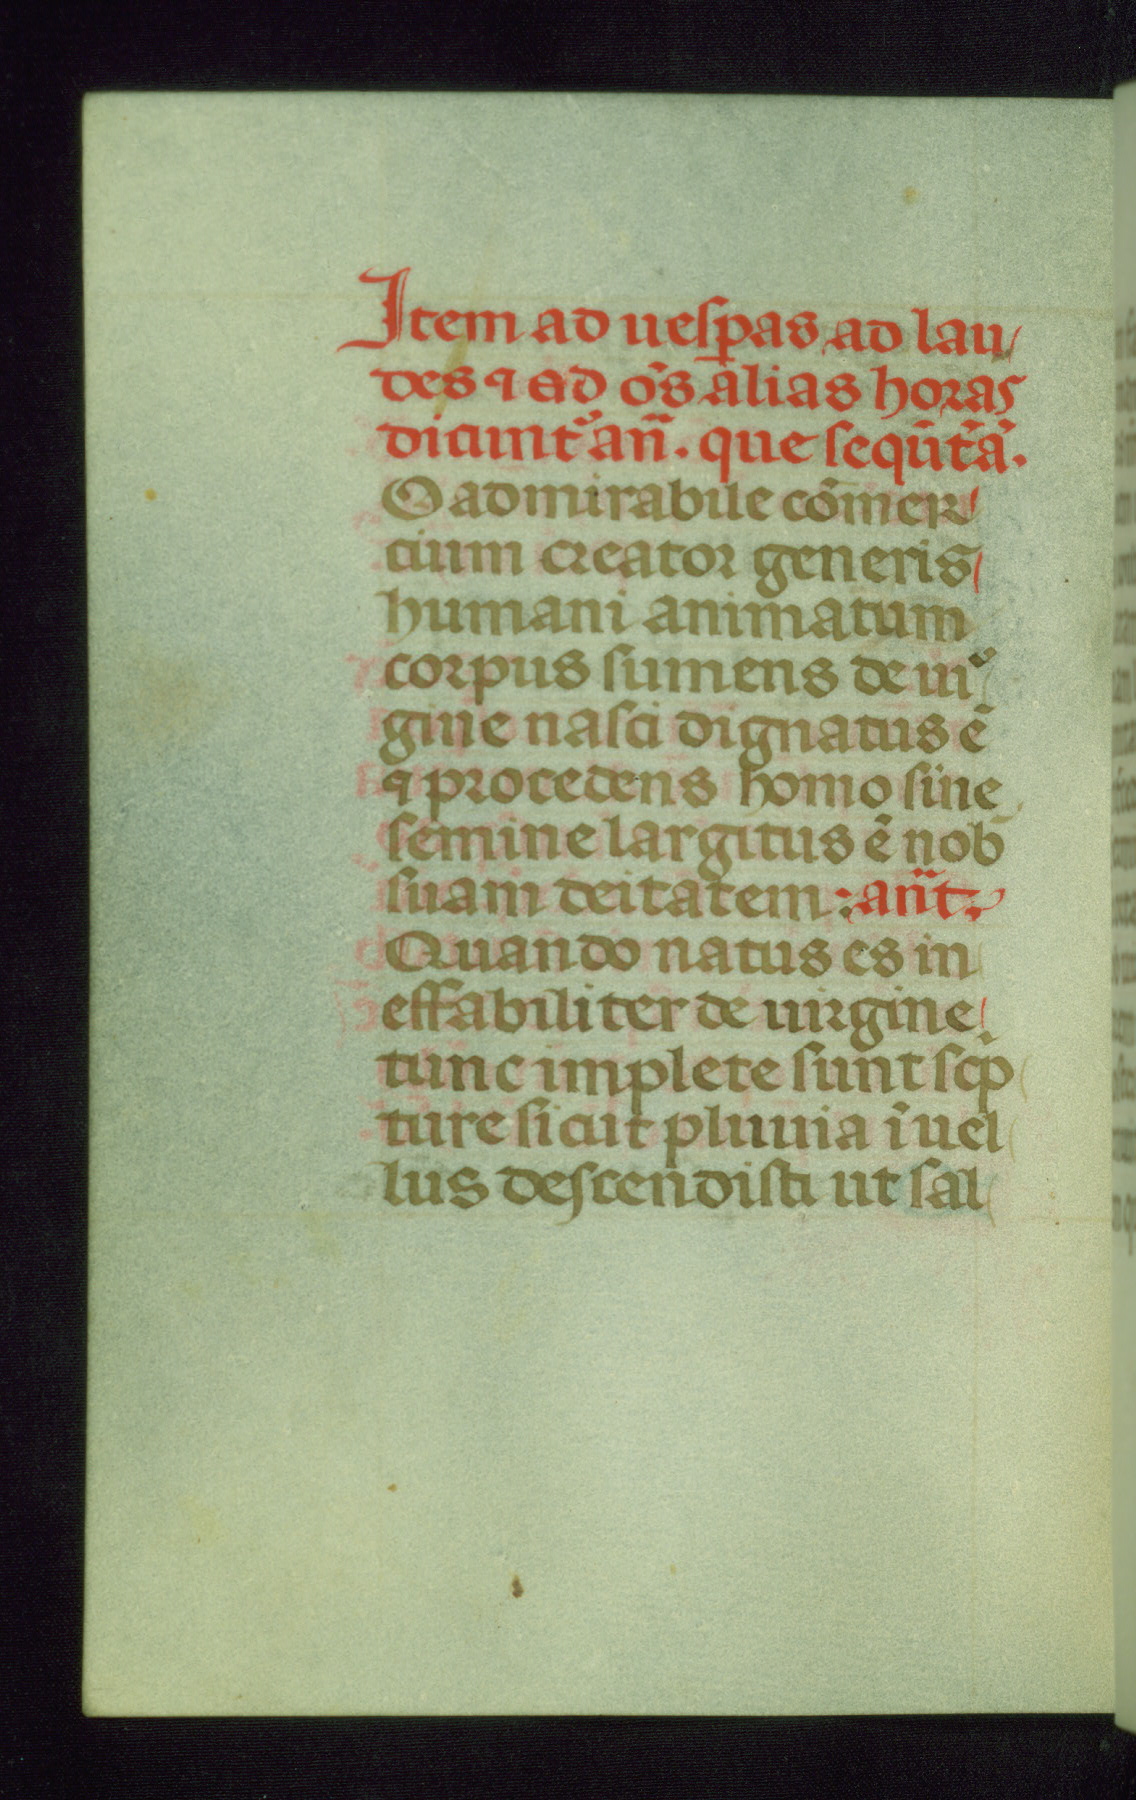 Item ad uesꝑas ad lau/
des ⁊ ad oẽs alias horas
dicunt᷑ añ. que sequũt᷑a᷑.
O admirabile cõmer/
cium creator generis/
humani animatum
corpus sumens de uir
gine nasci dignatus ẽ
⁊ procedens homo sine
semine largitus ẽ nob̃
suam deitatem: añt.
Quando natus es in
effabiliter de uirgine/
tunc implete sunt scp̃
ture sicut pluuia ĩ uel
lus descendisti ut sal